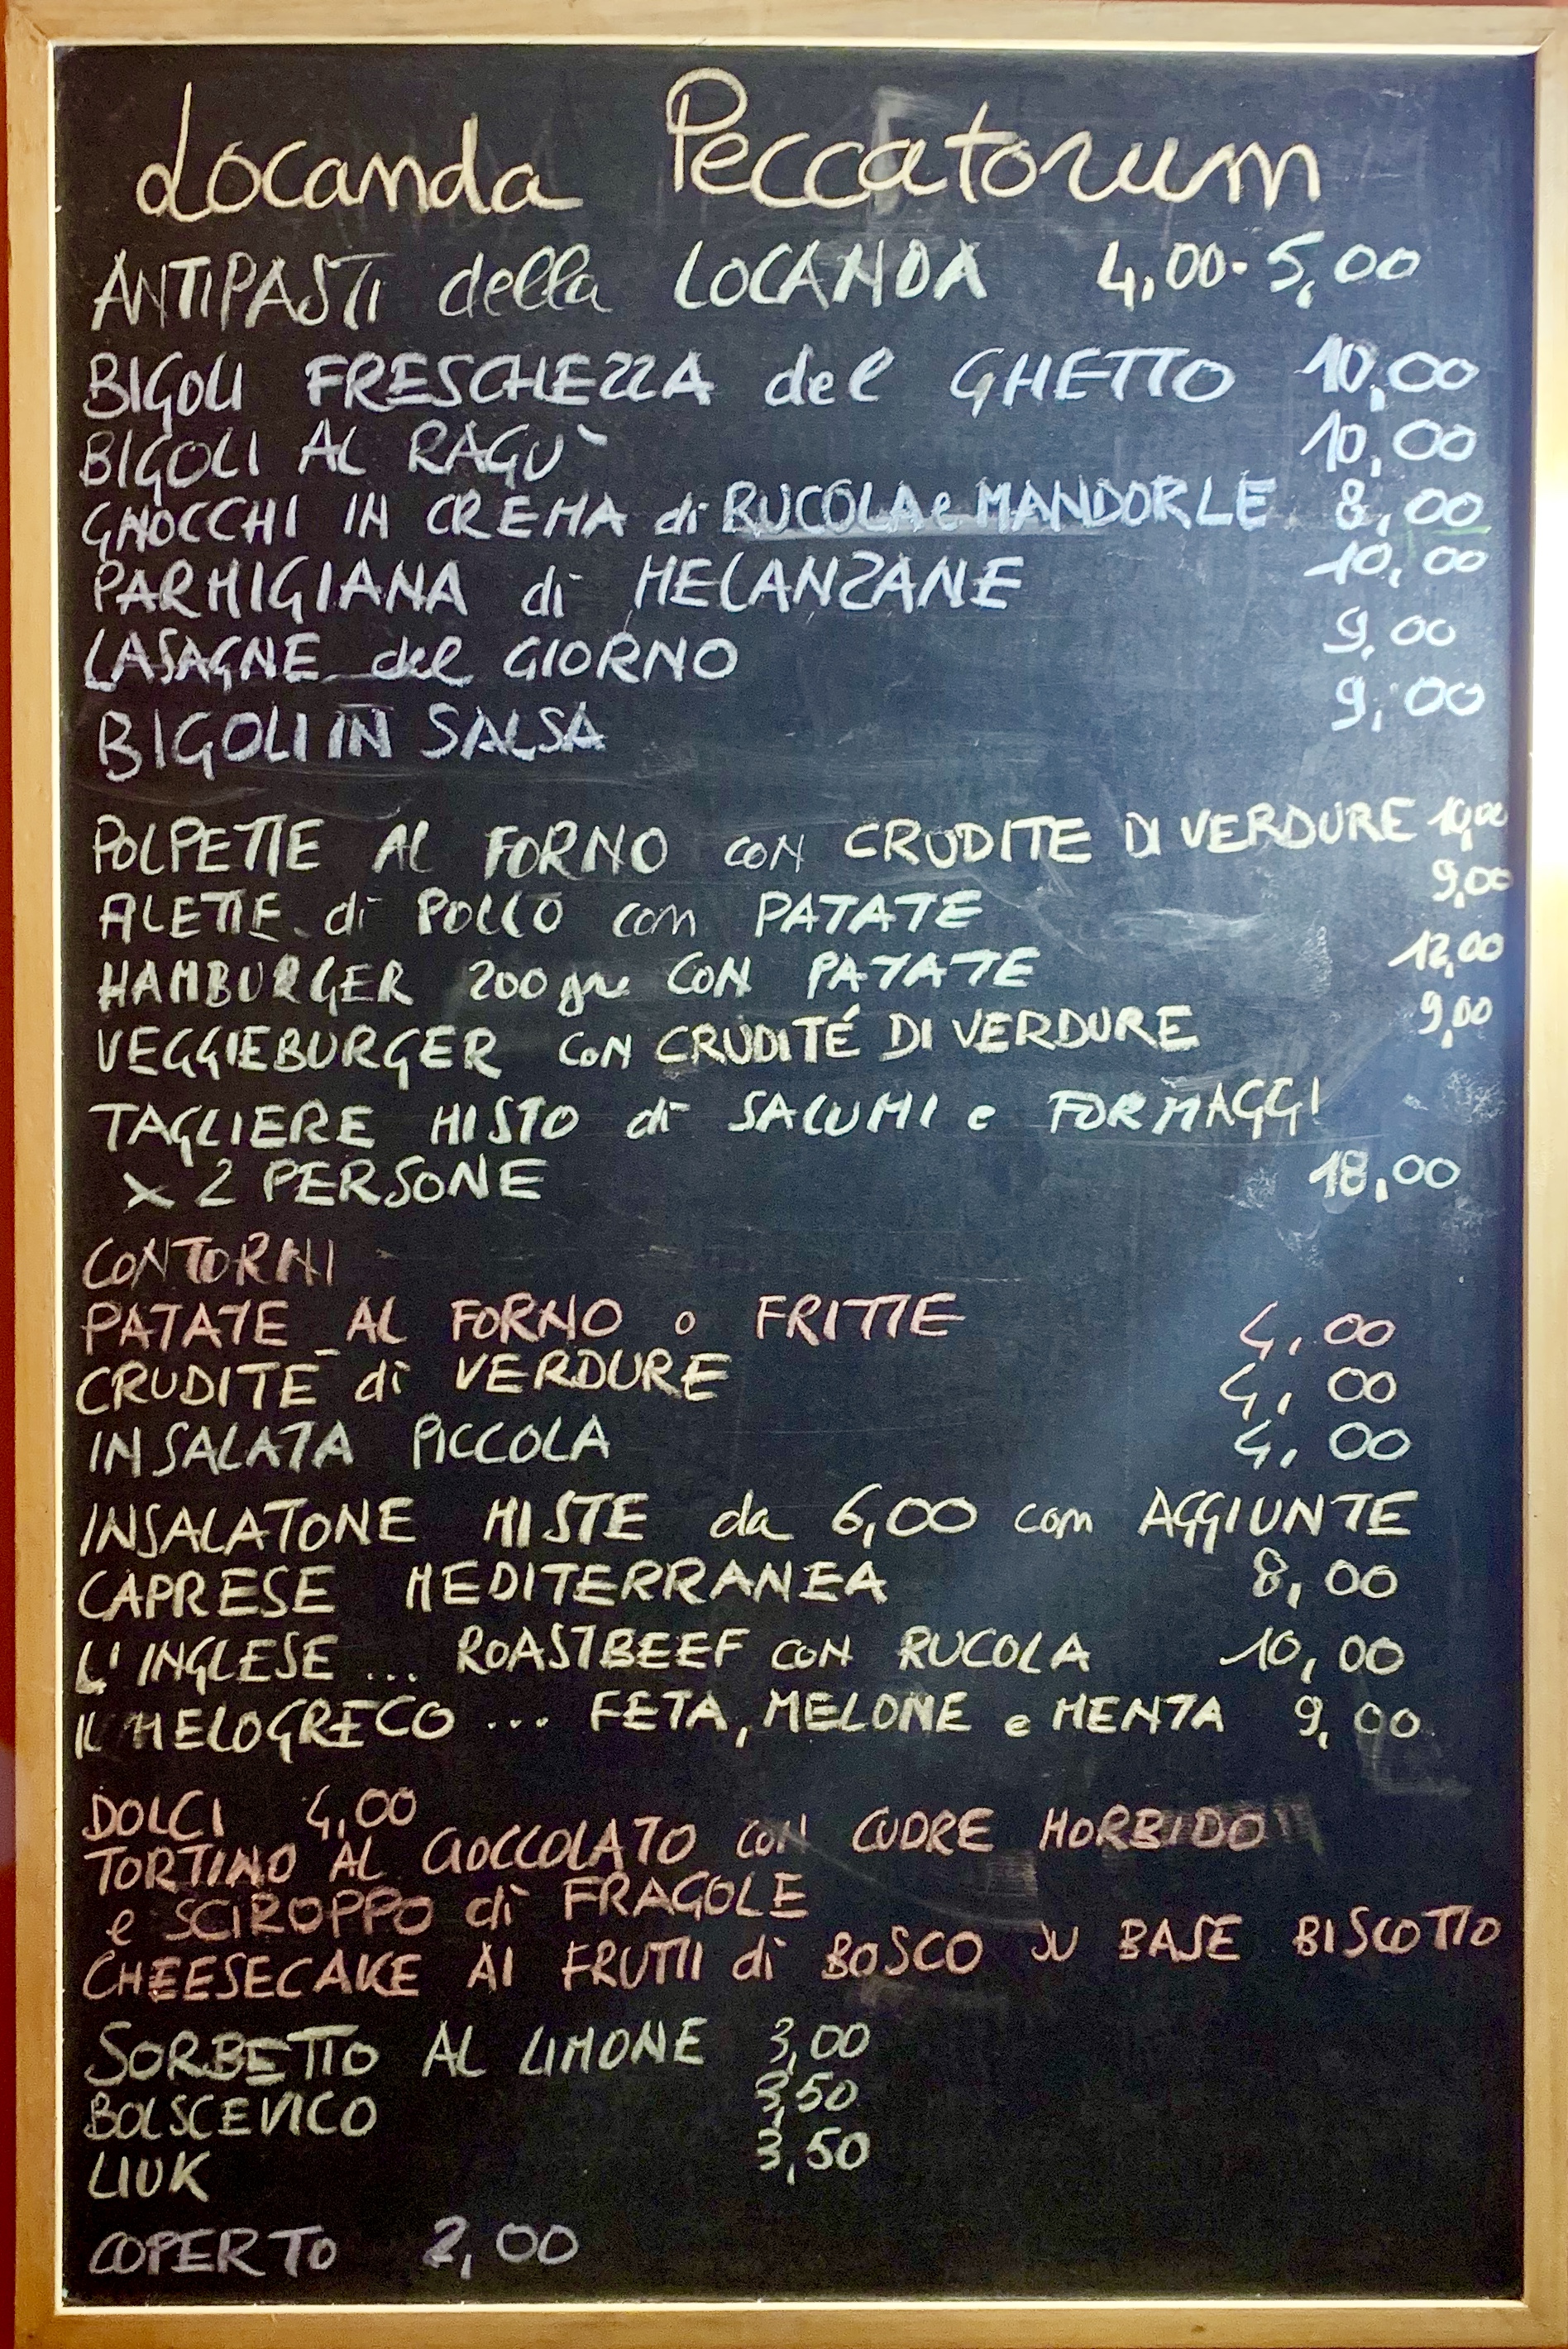 Locanda Peccatorum
ANTIPASTI della LOCANDA 4,00-5,00
BIGOLI FRESCHEZZA del GHETTO 10,00
BIGOLI AL RAGÙ 10,00
GNOCCHI IN CREMA di RUCOLA e MANDORLE 8,00
PARMIGIANA di MELANZANE 10,00
LASAGNE del GIORNO 9,00
BIGOLI IN SALSA 9,00
POLPETTE AL FORNO CON CRUDITE DI VERDURE 10,00
ALETTE di POLLO con PATATE 9,00
HAMBURGER 200 gr CON PATATE 12,00
VEGGIEBURGER CON CRUDITÉ DI VERDURE 9,00
TAGLIERE MISTO di SALUMI e FORMAGGI
x 2 PERSONE 18,00
CONTORNI
PATATE AL FORNO o FRITTE 4,00
CRUDITE di VERDURE 4,00
INSALATA PICCOLA 4,00
INSALATONE MISTE da 6,00 con AGGIUNTE
CAPRESE MEDITERRANEA 8,00
L'INGLESE ... ROASTBEEF CON RUCOLA 10,00
IL MELOGRECO ... FETA, MELONE e MENTA 9,00
DOLCI 4,00
TORTINO AL CIOCCOLATO CON CUORE MORBIDO
e SCIROPPO di FRAGOLE
CHEESECAKE AI FRUTTI di BOSCO SU BASE BISCOTTO
SORBETTO AL LIMONE 3,00
BOLSCEVICO 3,50
LIUK 3,50
COPERTO 2,00